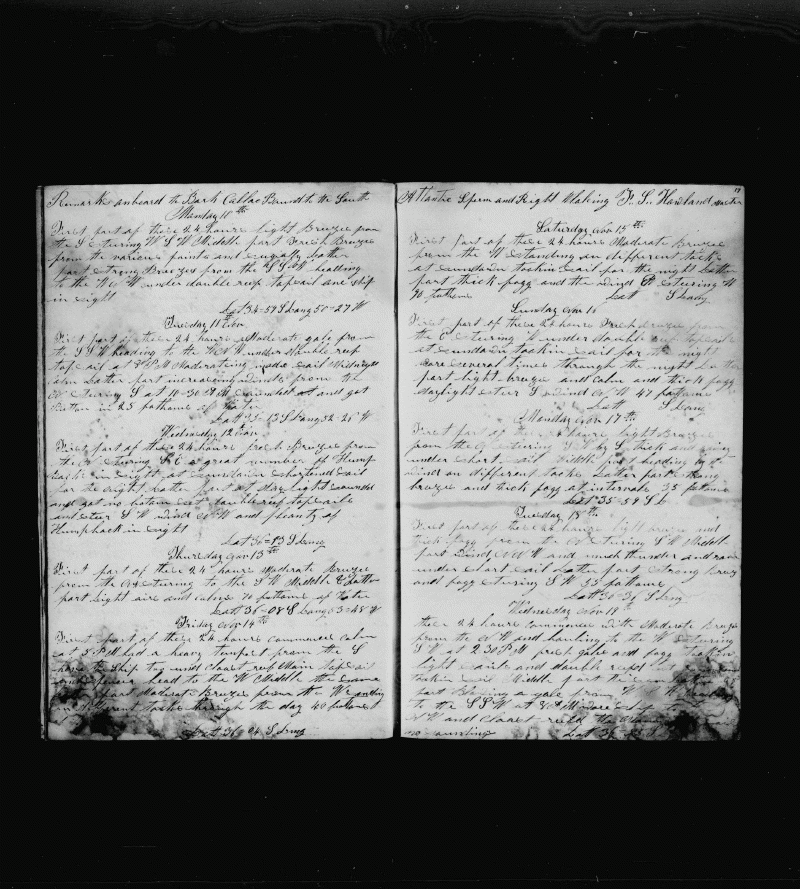 Remarks onboard the Bark Callao Bound to the South
Monday 10th
First part of these 24 hours light Breezes from
the S E turing W S W Middle part Fresh Breezes
from the various points and squaly latter
part strong Breezes from the S S W heading
to the W under double reep topsail one ship
in sight
Latt 34=59 S Long 50=27 W
Tuesday 11 Nov
First part of these 24 hours Moderate gale from
the S S W heading to the W N W under double reep
topsail at 8 P M Moderating made sail Midnight
calm Latter part increasing winds from the
N E turing S at 10=30 A M sounded and got
bottom in 25 pathoms of water
Latt 35=13 S Long 52=26 W
Wednesday 12 Nov
First part of these 24 hours fresh Breezes from
the E turing S E a great number of Hump
back in sight at sundown shortened sail
for the night Latter part at day light sounded
and got no bottom set double reep topsails
and steer S W winds N W and plenty of
Humpback in sight
Latt 36=13 S Long
Thursday Nov 13th
First part of these 24 hours Moderate Breezes
from the turing to the S W Middle & Latter
part Light airs and calms 70 pathoms of Water
Latt 36=08 S Long 53=48 W
Friday Nov 14th
First part of these 24 hours commenced calm
at 5 P M had a heavy tempest from the S
have the Ship too under closet reep Main topsail
and head to the W Middle the same
Latter part Moderate Breezes from the W standing
on different tacks through the day 40 pathoms
Latt 36=04 S Long
Atlantic Sperm and Right Whaling F. S. Howland Master
Saturday Nov 15th
First part of these 24 hours Moderate Breezes
from the W standing on different tacks
at sundown tookin sail for the night Latter
part thick fogg and the winds E turing W
70 pathoms Latt S Long
Sunday Nov 16
First part of these 24 hours Fresh breezes from
the E turing W under double reep topsails
at sundown tookin sail for the night
wore several times through the night Latter
part light breeze and calm and thick fogg
daylight steer S winds N W 47 pathoms
Latt S Long
Monday Nov 17th
First part of these 24 hours light Breezes
from the turing S W by S thick and rainy
under short sail Middle part heading
wind on different tacks Latter part strong
breeze and thick fogg at intervals 35 pathoms
Latt 35=59 S L
Tuesday 18th
First part of these 24 hours light breeze and
thick fogg from the N E turing S W Middle
part wind N N W and much thunder and rain
under short sail Latter part strong breeze
and fogg turing S W 35 pathoms
Latt 36=36 S Long
Wednesday Nov 19th
these 24 hours commences with Moderate Breezes
from the N W and hauling to the W turing
S W at 2=30 P M fresh gale and fogg taken
light sails and double reept
tookin sail Middle part the same Latter
part Blowing a gale from W S W heading
to the S S W at 8 P M wore ship to
N W and closet reeft the Main
no sounding Latt 36=